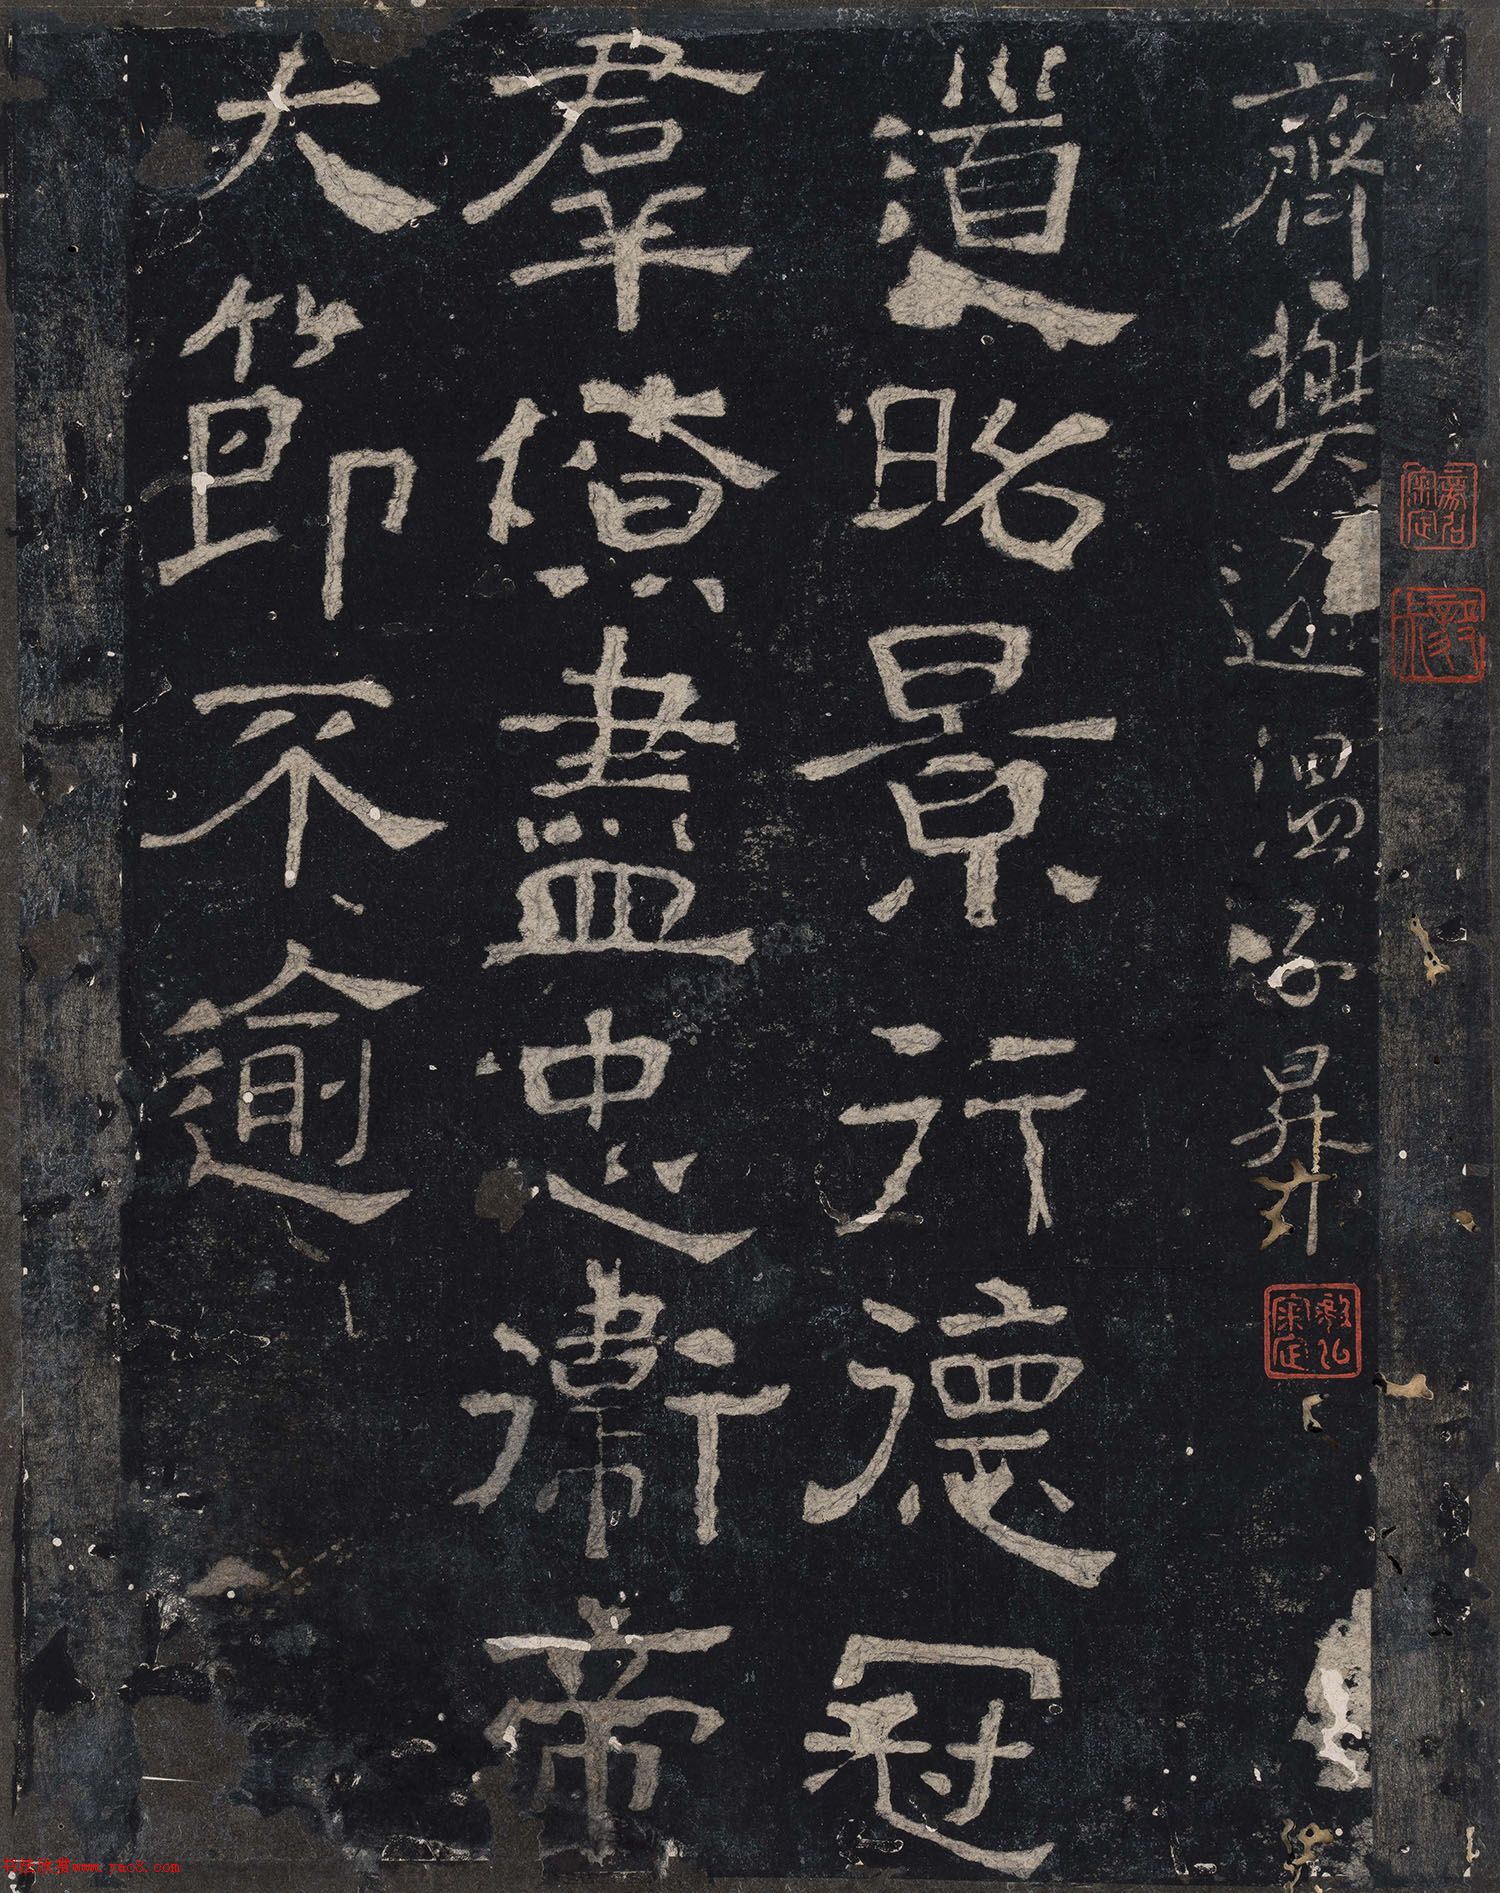 齊撰溫子昇
道昭景行德冠
羣僚盡忠衛帝
大節不逾
书法欣赏www.yac8.com